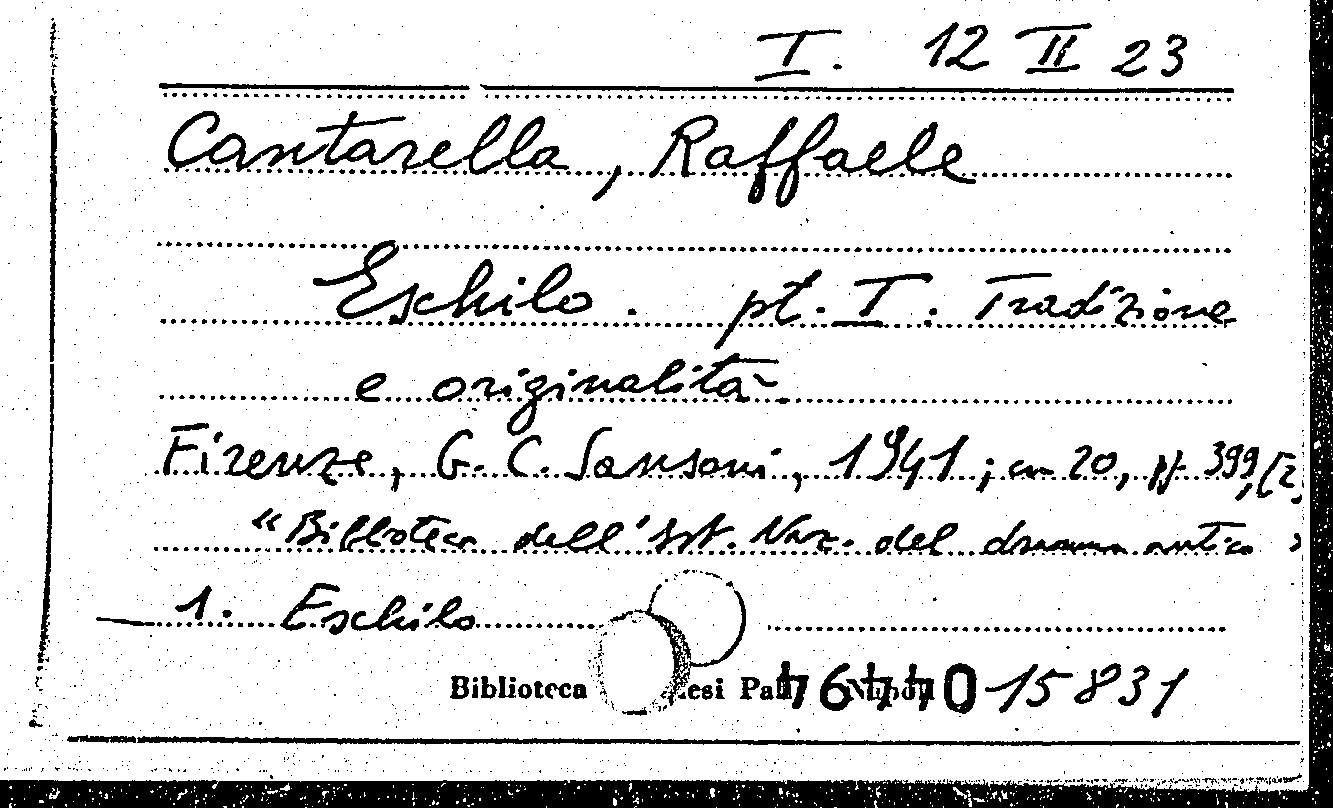 I. 12 II 23
Cantarella, Raffaele
Eschilo. pt. I. Tradizione
e originalità.
Firenze, G. C. Sansoni, 1941; cm 20, pp. 399, [2]
"Biblioteca dell'Ist. Naz. del dramma antico"
1. Eschilo
Biblioteca 15831